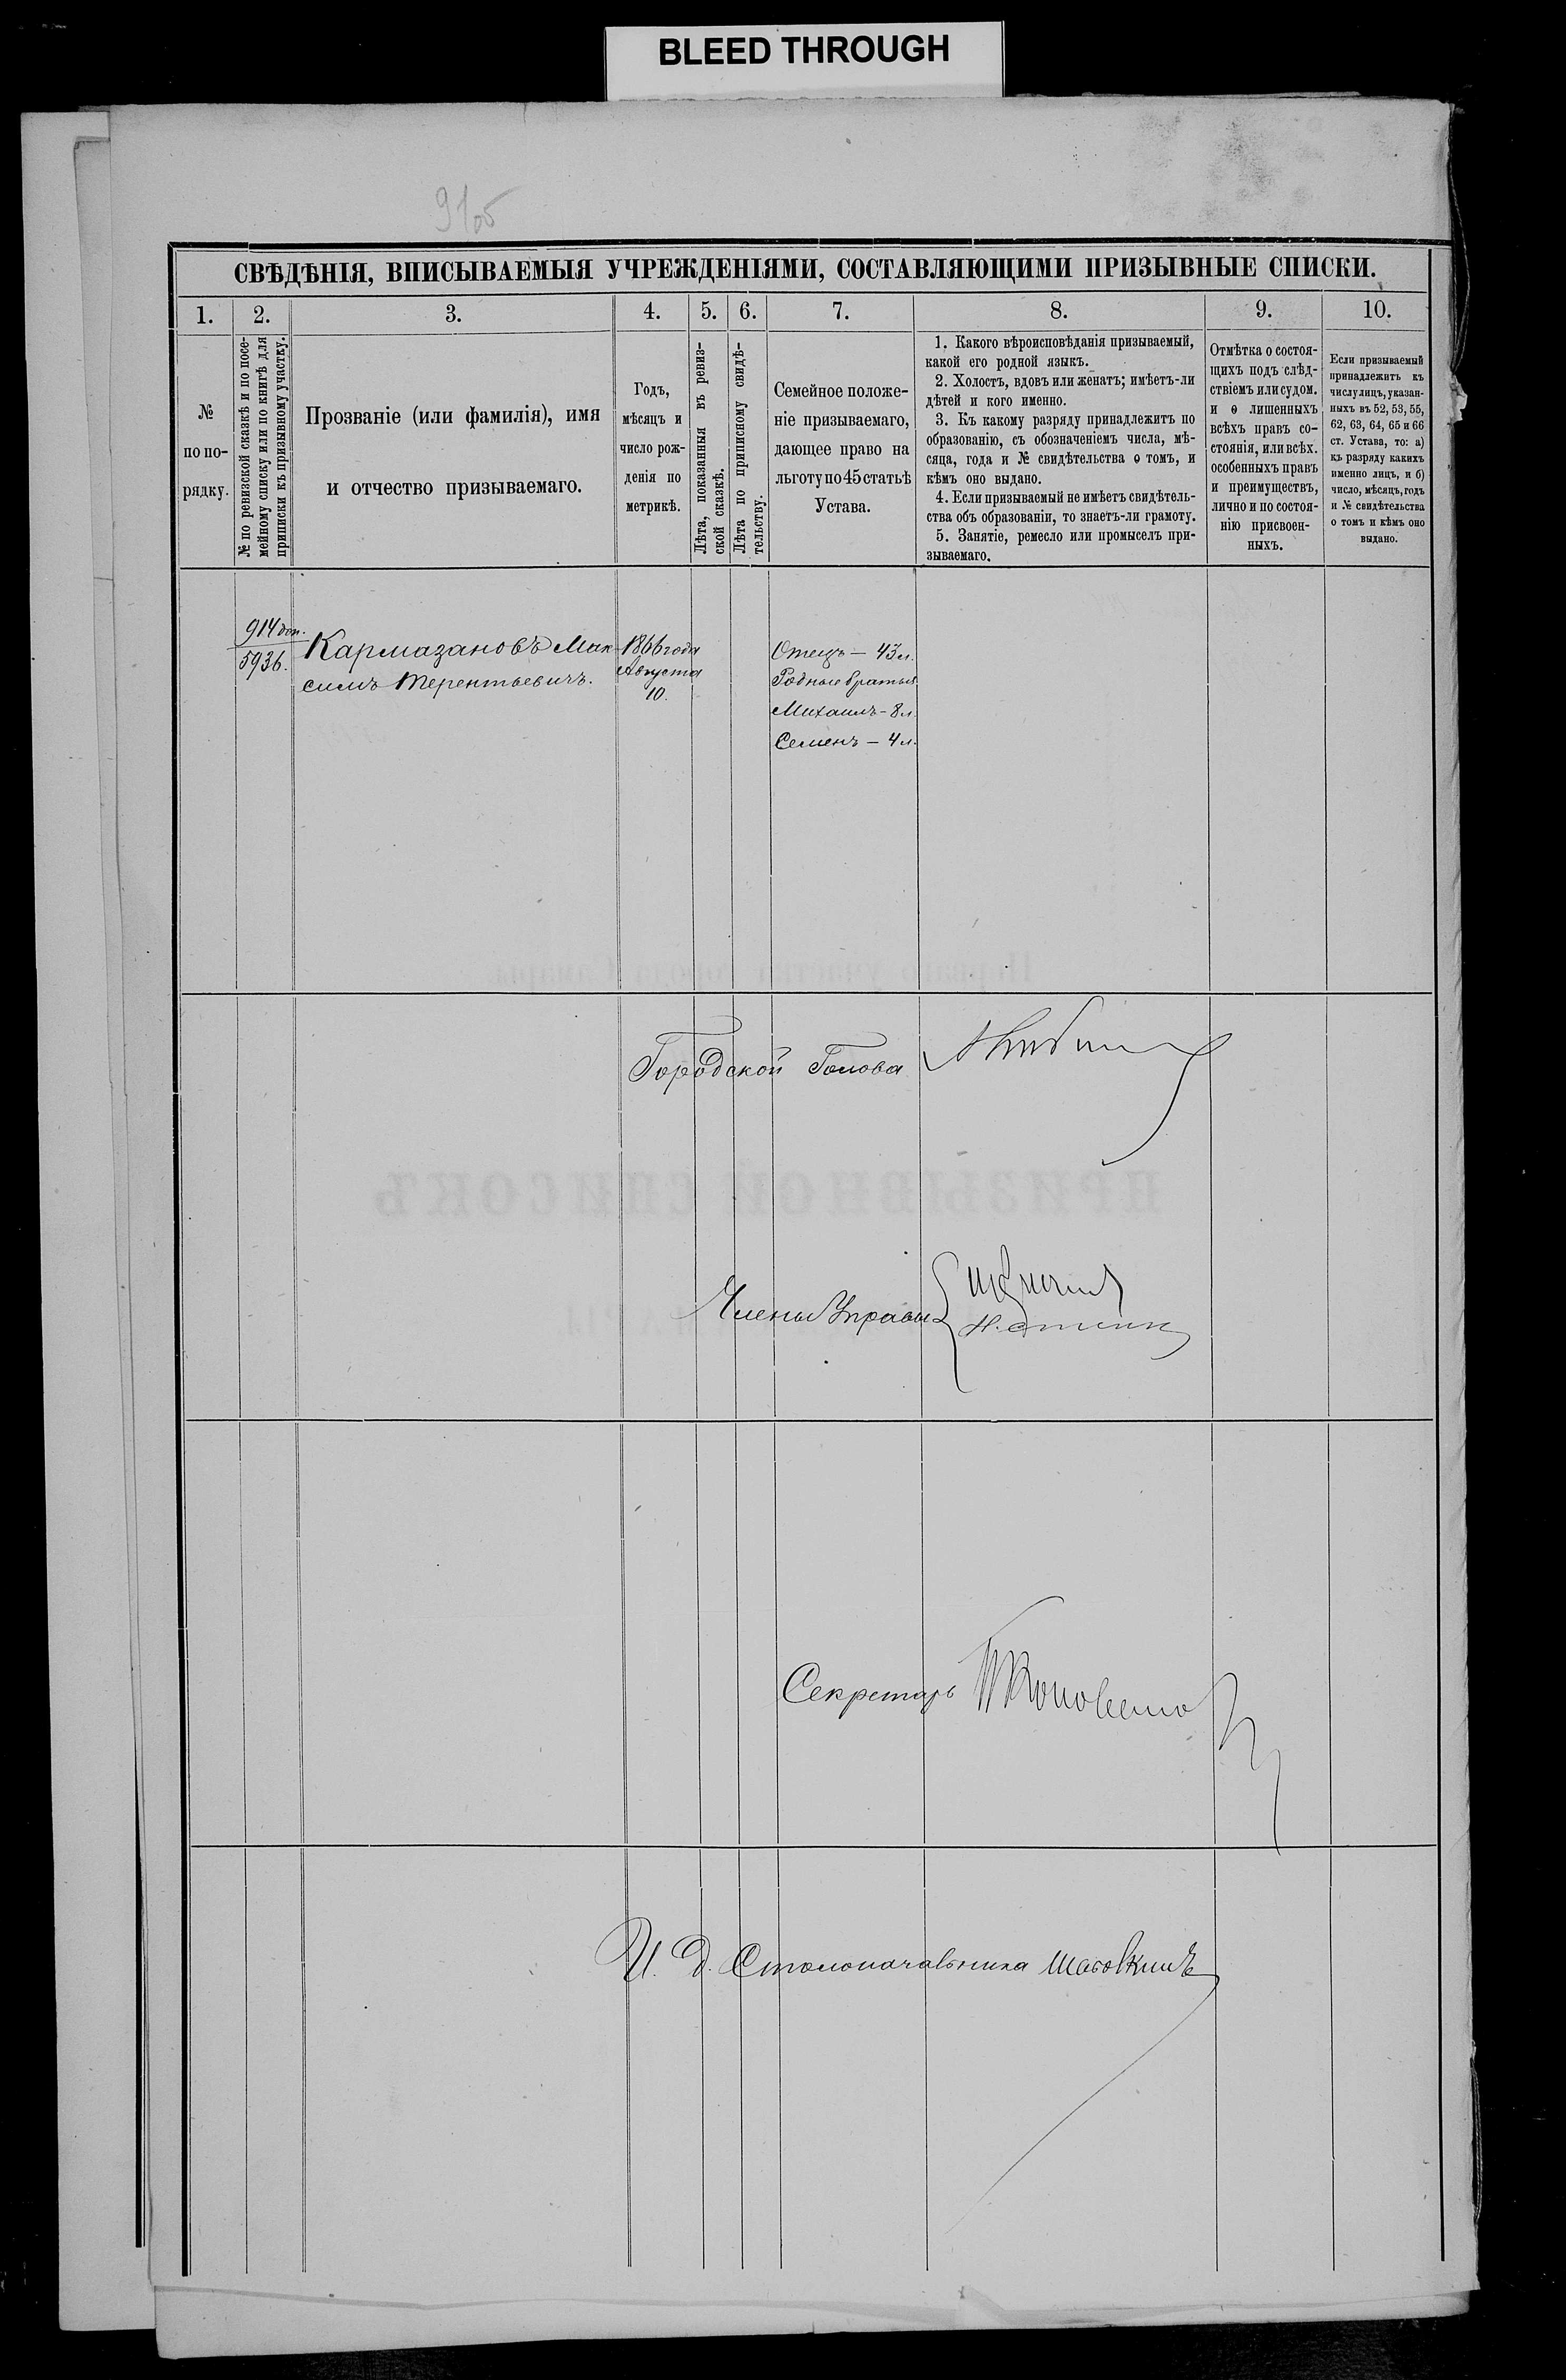 BLEED THROUGH
СВѢДѢНІЯ, ВПИСЫВАЕМЫЯ УЧРЕЖДЕНІЯМИ, СОСТАВЛЯЮЩИМИ ПРИЗЫВНЫЕ СПИСКИ.
1. 2. 3. 4. 5. 6. 7. 8. 9. 10.
№
по по-
рядку.
№ по ревизской сказкѣ и по посе-
мейному списку или по книгѣ для
приписки къ призывному участку.
Прозваніе (или фамилія), имя
и отчество призываемаго.
Годъ,
мѣсяцъ и
число рож-
денія по
метрикѣ.
Лѣта, показанныя въ ревиз-
ской сказкѣ.
Лѣта по приписному свидѣ-
тельству.
Семейное положе-
ніе призываемаго,
дающее право на
льготу по 45 статьѣ
Устава.
1. Какого вѣроисповѣданія призываемый,
какой его родной языкъ.
2. Холостъ, вдовъ или женатъ; имѣетъ-ли
дѣтей и кого именно.
3. Къ какому разряду принадлежитъ по
образованію, съ обозначеніемъ числа, мѣ-
сяца, года и № свидѣтельства о томъ, и
кѣмъ оно выдано.
4. Если призываемый не имѣетъ свидѣтель-
ства объ образованіи, то знаетъ-ли грамоту.
5. Занятіе, ремесло или промыселъ при-
зываемаго.
Отмѣтка о состоя-
щихъ подъ слѣд-
ствіемъ или судом.
и о лишенныхъ
всѣхъ правъ со-
стоянія, или всѣх.
особенныхъ правъ
и преимуществъ,
лично и по состоя-
нію присвоен-
ныхъ.
Если призываемый
принадлежитъ къ
числу лицъ, указан-
ныхъ въ 52, 53, 55,
62, 63, 64, 65 и 66
ст. Устава, то: а)
къ разряду какихъ
именно лицъ, и б)
число, мѣсяцъ, годъ
и № свидѣтельства
о томъ и кѣмъ оно
выдано.
914 доп.
5936.
Кармазановъ Мак
симъ Терентьевичъ.
1866 года
Августа
10.
Отецъ – 43 л.
Родные братья
Михаилъ – 8 л.
Семенъ – 4 л.
Городской Голова
Члены Управы
Секретарь
И. Д. Столоначальника